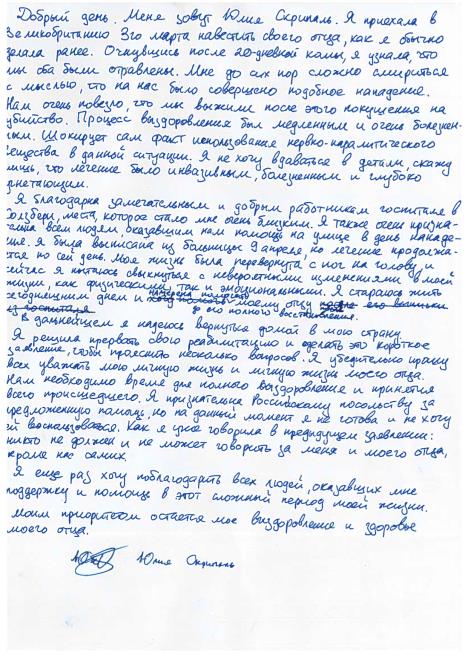 Добрый день. Меня зовут Юлия Скрипаль. Я приехала в
Великобританию 3го марта навестить своего отца, как я обычно
делала ранее. Очнувшись после 20-дневной комы, я узнала, что
мы оба были отравлены. Мне до сих пор сложно смириться
с мыслью, что на нас было совершено подобное нападение.
Нам очень повезло, что мы выжили после этого покушения на
убийство. Процесс выздоровления был медленным и очень болезнен-
ным. Шокирует сам факт использования нервно-паралитического
вещества в данной ситуации. Я не хочу вдаваться в детали, скажу
лишь, что лечение было инвазивным, болезненным и глубоко
угнетающим.
Я благодарна замечательным и добрым работникам госпиталя в
Солзбери, места, которое стало мне очень близким. Я также очень призна-
тельна всем людям, оказавшим нам помощь на улице в день нападе-
ния. Я была выписана из больницы 9 апреля, но лечение продолжа-
ется по сей день. Моя жизнь была перевернута с ног на голову и
сейчас я пытаюсь свыкнуться с невероятными изменениями в моей
жизни, как физическими, так и эмоциональными. Я стараюсь жить
сегодняшним днем и хочу помогать намерена помогать моему отцу после его выписки
из госпиталя до его полного восстановления.
В дальнейшем я надеюсь вернуться домой в мою страну.
Я решила прервать свою реабилитацию и сделать это короткое
заявление, чтобы прояснить несколько вопросов. Я убедительно прошу
всех уважать мою личную жизнь и личную жизнь моего отца.
Нам необходимо время для полного выздоровления и принятия
всего происшедшего. Я признательна Российскому посольству за
предложенную помощь, но на данный момент я не готова и не хочу
ей воспользоваться. Как я уже говорила в предыдущем заявлении:
никто не должен и не может говорить за меня и моего отца,
кроме нас самих.
Я еще раз хочу поблагодарить всех людей, оказавших мне
поддержку и помощь в этот сложный период моей жизни.
Моим приоритетом остается мое выздоровление и здоровье
моего отца.
Юлия Скрипаль